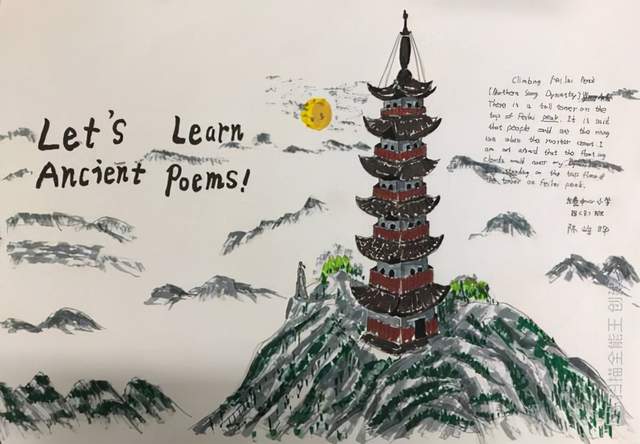 Let's Learn
Ancient Poems!
Climbing Feilai Peak
(Northern Song Dynasty)
There is a tall tower on the
top of Feilai peak. It is said
that people could see the rising
sun when the rooster crows. I
am not afraid that the floating
clouds would cover my
standing on the top floor of
the tower on Feilai peak.
小学
陈
扫描全能王 创